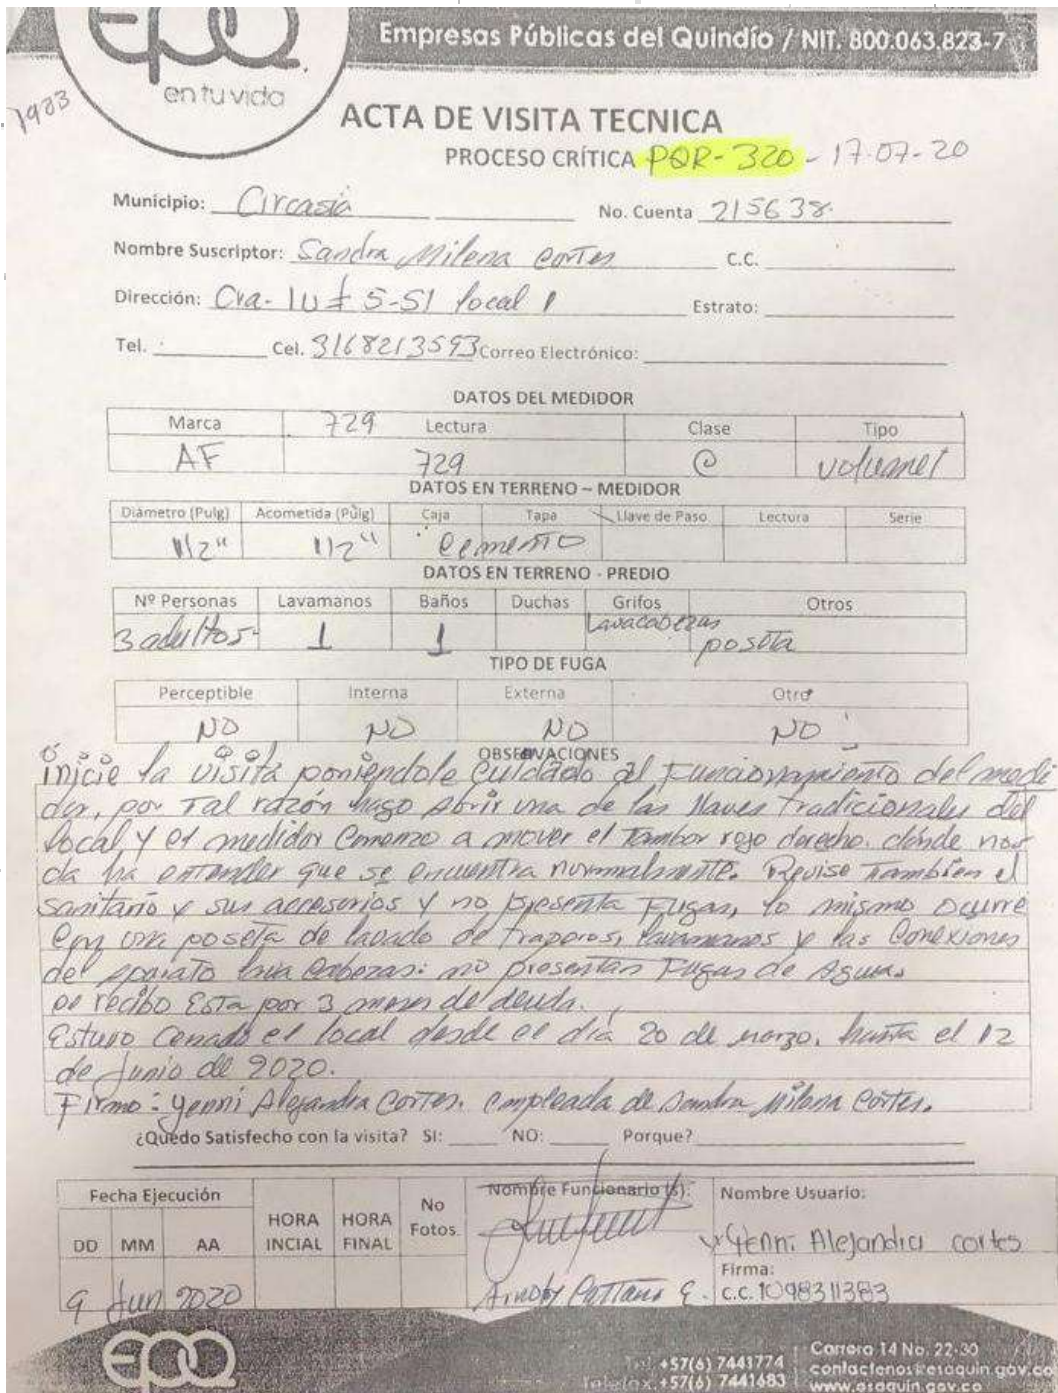 epq
Empresas Públicas del Quindío / NIT. 800.063.823-7
en tu vida
1983
ACTA DE VISITA TECNICA
PROCESO CRÍTICA PQR-320 - 17-07-20
Municipio: Circasia No. Cuenta 215638
Nombre Suscriptor: Sandra Milena Cortes C.C.
Dirección: Cra- 14 # 5-51 local 1 Estrato:
Tel. Cel. 3168213593 Correo Electrónico:
DATOS DEL MEDIDOR
Marca 729 Lectura Clase Tipo
AF 729 C
DATOS EN TERRENO – MEDIDOR
Diametro (Pulg) Acometida (Pulg) Caja Tapa Llave de Paso Lectura Serie
1/2" 1/2" Cemento
DATOS EN TERRENO - PREDIO
Nº Personas Lavamanos Baños Duchas Grifos Otros
3 adultos- 1 1 Lavacabezas poseta
TIPO DE FUGA
Perceptible Interna Externa Otro
NO NO NO NO
OBSERVACIONES
inicie la visita poniendole cuidado al funcionamiento del medi
dor, por tal razón hago abrir una de las llaves tradicionales del
local y el medidor Comenzo a mover el tambor rojo derecho. dónde nos
da ha entender que se encuentra normalmente. Revise también el
sanitario y sus accesorios y no presenta fugas, lo mismo ocurre
con una poseta de lavado de traperos, lavamanos y las Conexiones
del aparato lava Cabezas: no presentan fugas de Agua.
el recibo Esta por 3 meses de deuda.
Estuvo Cerrado el local desde el día 20 de marzo, hasta el 12
de Junio de 2020.
Firmo: Yenni Alejandra Cortes. empleada de Sandra Milena Cortes.
¿Quedo Satisfecho con la visita? SI: NO: Porque?
Fecha Ejecución HORA INCIAL HORA FINAL No Fotos Nombre Funcionario (s): Nombre Usuario:
DD MM AA
Yenni Alejandra cortes
Firma:
9 Jun 2020 C.C. 1098311383
epq
Tel. +57(6) 7441774
Telefax +57(6) 7441683
Carrera 14 No. 22-30
contactenos@esaquin.gov.co
www.esaquin.gov.co